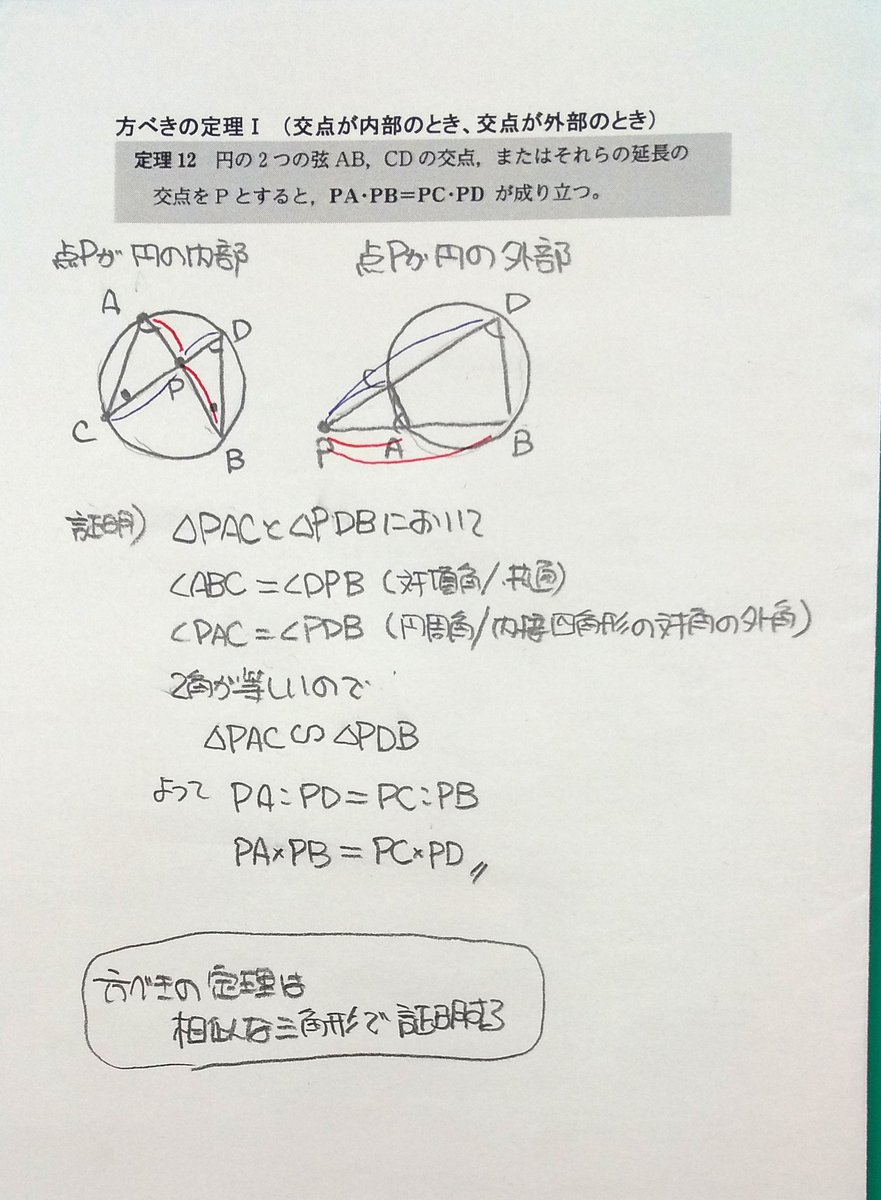 方べきの定理Ⅰ （交点が内部のとき、交点が外部のとき）
定理12 円の2つの弦AB，CDの交点，またはそれらの延長の
交点をPとすると，PA・PB＝PC・PD が成り立つ。
点Pが円の内部 点Pが円の外部
A D P C B
D C P A B
証明) △PACと△PDBにおいて
∠ABC＝∠DPB（対頂角/共通）
∠PAC＝∠PDB（円周角/内接四角形の対角の外角）
2角が等しいので
△PAC∽△PDB
よって PA:PD＝PC:PB
PA×PB＝PC×PD〃
方べきの定理は
相似な三角形で証明する